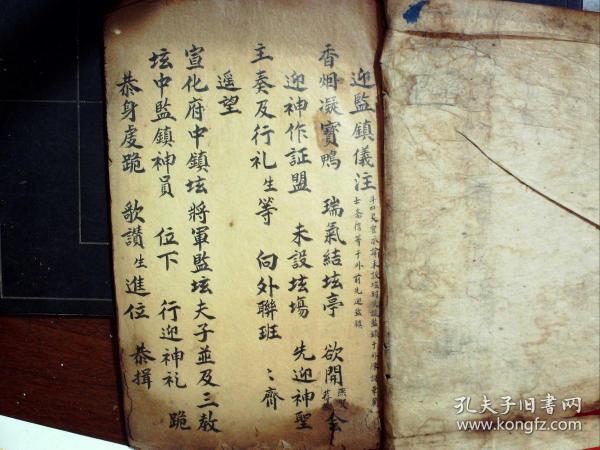 迎監鎮儀注
香烟凝寶鴨 瑞氣結坛亭 欲開 会
迎神作証盟 未設坛塲 先迎神聖
主奏及行礼生等 向外聯班 〻齊
遥望
宣化府中鎮坛將軍監坛夫子並及三教
坛中監鎮神員 位下 行迎神礼 跪
恭身虔跪 歌讚生進位 恭揖
孔夫子旧書网
www.kongfz.com